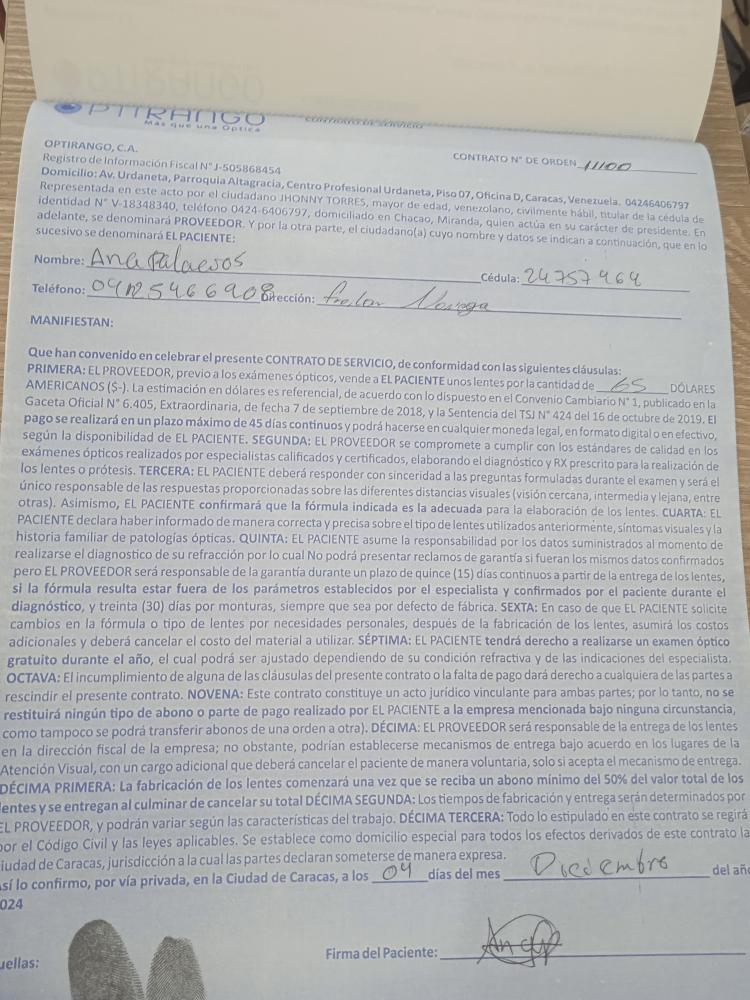 OPTIRANGO
Más que una Óptica
CONTRATO DE SERVICIO
OPTIRANGO, C.A.
CONTRATO N° DE ORDEN 11100
Registro de Información Fiscal N° J-505868454
Domicilio: Av. Urdaneta, Parroquia Altagracia, Centro Profesional Urdaneta, Piso 07, Oficina D, Caracas, Venezuela. 04246406797
Representada en este acto por el ciudadano JHONNY TORRES, mayor de edad, venezolano, civilmente hábil, titular de la cédula de
identidad N° V-18348340, teléfono 0424-6406797, domiciliado en Chacao, Miranda, quien actúa en su carácter de presidente. En
adelante, se denominará PROVEEDOR. Y por la otra parte, el ciudadano(a) cuyo nombre y datos se indican a continuación, que en lo
sucesivo se denominará EL PACIENTE:
Nombre: Ana Palacios Cédula: 24757964
Teléfono: 04125466908 Dirección:
MANIFIESTAN:
Que han convenido en celebrar el presente CONTRATO DE SERVICIO, de conformidad con las siguientes cláusulas:
PRIMERA: EL PROVEEDOR, previo a los exámenes ópticos, vende a EL PACIENTE unos lentes por la cantidad de 65 DÓLARES
AMERICANOS ($-). La estimación en dólares es referencial, de acuerdo con lo dispuesto en el Convenio Cambiario N° 1, publicado en la
Gaceta Oficial N° 6.405, Extraordinaria, de fecha 7 de septiembre de 2018, y la Sentencia del TSJ N° 424 del 16 de octubre de 2019. El
pago se realizará en un plazo máximo de 45 días continuos y podrá hacerse en cualquier moneda legal, en formato digital o en efectivo,
según la disponibilidad de EL PACIENTE. SEGUNDA: EL PROVEEDOR se compromete a cumplir con los estándares de calidad en los
exámenes ópticos realizados por especialistas calificados y certificados, elaborando el diagnóstico y RX prescrito para la realización de
los lentes o prótesis. TERCERA: EL PACIENTE deberá responder con sinceridad a las preguntas formuladas durante el examen y será el
único responsable de las respuestas proporcionadas sobre las diferentes distancias visuales (visión cercana, intermedia y lejana, entre
otras). Asimismo, EL PACIENTE confirmará que la fórmula indicada es la adecuada para la elaboración de los lentes. CUARTA: EL
PACIENTE declara haber informado de manera correcta y precisa sobre el tipo de lentes utilizados anteriormente, síntomas visuales y la
historia familiar de patologías ópticas. QUINTA: EL PACIENTE asume la responsabilidad por los datos suministrados al momento de
realizarse el diagnostico de su refracción por lo cual No podrá presentar reclamos de garantía si fueran los mismos datos confirmados
pero EL PROVEEDOR será responsable de la garantía durante un plazo de quince (15) días continuos a partir de la entrega de los lentes,
si la fórmula resulta estar fuera de los parámetros establecidos por el especialista y confirmados por el paciente durante el
diagnóstico, y treinta (30) días por monturas, siempre que sea por defecto de fábrica. SEXTA: En caso de que EL PACIENTE solicite
cambios en la fórmula o tipo de lentes por necesidades personales, después de la fabricación de los lentes, asumirá los costos
adicionales y deberá cancelar el costo del material a utilizar. SÉPTIMA: EL PACIENTE tendrá derecho a realizarse un examen óptico
gratuito durante el año, el cual podrá ser ajustado dependiendo de su condición refractiva y de las indicaciones del especialista.
OCTAVA: El incumplimiento de alguna de las cláusulas del presente contrato o la falta de pago dará derecho a cualquiera de las partes a
rescindir el presente contrato. NOVENA: Este contrato constituye un acto jurídico vinculante para ambas partes; por lo tanto, no se
restituirá ningún tipo de abono o parte de pago realizado por EL PACIENTE a la empresa mencionada bajo ninguna circunstancia,
como tampoco se podrá transferir abonos de una orden a otra). DÉCIMA: EL PROVEEDOR será responsable de la entrega de los lentes
en la dirección fiscal de la empresa; no obstante, podrían establecerse mecanismos de entrega bajo acuerdo en los lugares de la
Atención Visual, con un cargo adicional que deberá cancelar el paciente de manera voluntaria, solo si acepta el mecanismo de entrega.
DÉCIMA PRIMERA: La fabricación de los lentes comenzará una vez que se reciba un abono mínimo del 50% del valor total de los
lentes y se entregan al culminar de cancelar su total DÉCIMA SEGUNDA: Los tiempos de fabricación y entrega serán determinados por
EL PROVEEDOR, y podrán variar según las características del trabajo. DÉCIMA TERCERA: Todo lo estipulado en este contrato se regirá
por el Código Civil y las leyes aplicables. Se establece como domicilio especial para todos los efectos derivados de este contrato la
ciudad de Caracas, jurisdicción a la cual las partes declaran someterse de manera expresa.
Así lo confirmo, por vía privada, en la Ciudad de Caracas, a los 04 días del mes Diciembre del año
2024
uellas:
Firma del Paciente: